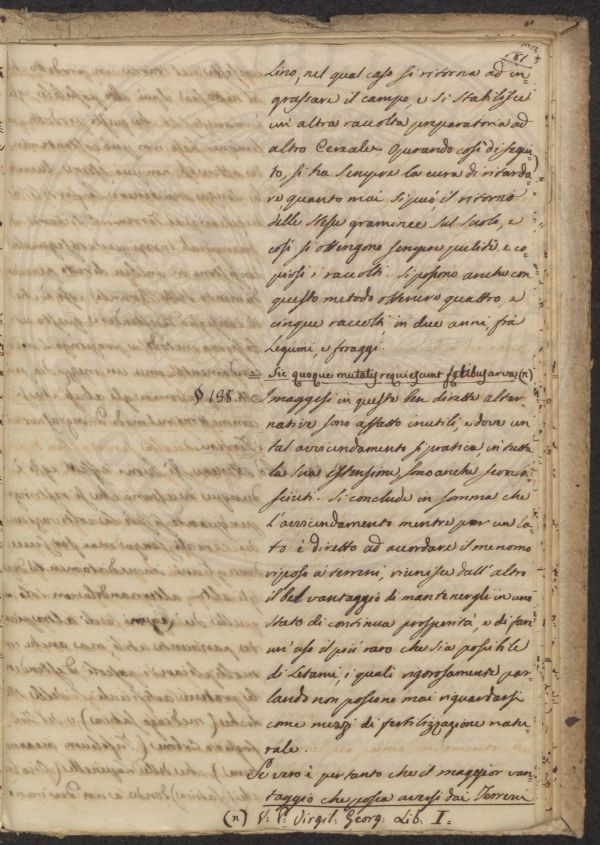 81
Lino, nel qual caso si ritorna ad in-
grassare il campo, e si stabilisce
un'altra raccolta preparatoria ad
altro Cereale. Operando così di segui-
to, si ha sempre la cura di ritarda-
re quanto mai si può il ritorno
delle stesse graminee sul suolo, e
così si ottengono sempre puliti e co-
piosi i raccolti. Si possono anche con
questo metodo ottenere quattro, e
cinque raccolti, in due anni, frà
Legumi, e foraggi.
Sic quoque mutatis requiescunt fętibus arva (n)
§ 198. I maggesi in queste ben dirette alter-
native sono affatto inutili, e dove un
tal avvicendamento si pratica in tutta
la sua estensione sono anche scono-
sciuti. Si conclude in somma che
l'avvicendamento mentre per un la-
to è diretto ad accordare il menomo
riposo a' terreni, riunisce dall'altro
il bel vantaggio di mantenergli in uno
stato di continua prosperità, e di fare
un'uso il più raro che sia possibile
di Letami, i quali rigorosamente par-
lando non possono mai riguardarsi
come mezzi di fertilizzazione natu-
rale.
Se vero è pertanto che il maggior van-
taggio che possa aversi dai Terreni
(n) V: P: Virgil: Georg: Lib. I=